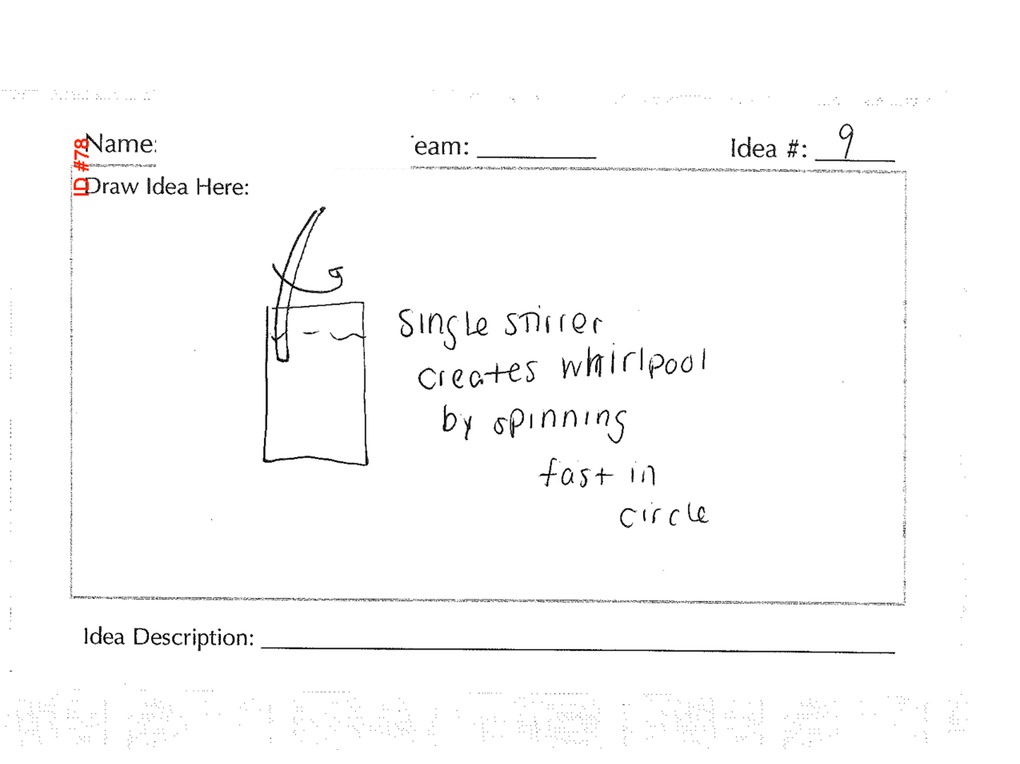 ID #78
Name:
eam:
Idea #: 9
Draw Idea Here:
Single stirrer
creates whirlpool
by spinning
fast in
circle
Idea Description: